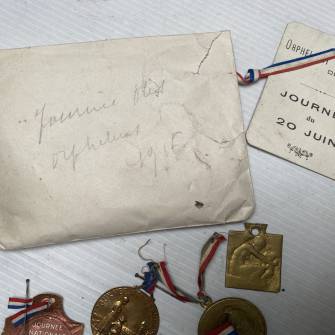 "Journée des
orphelins
1916
ORPHEL
JOURNÉ
du
20 JUIN
JOURNÉE
NATIONALE